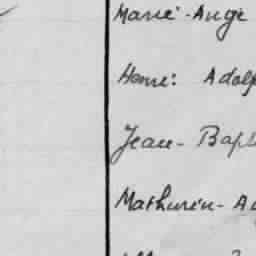 Marie-Ange
Henri: Adolp
Jean-Bapt
Mathurin-Au